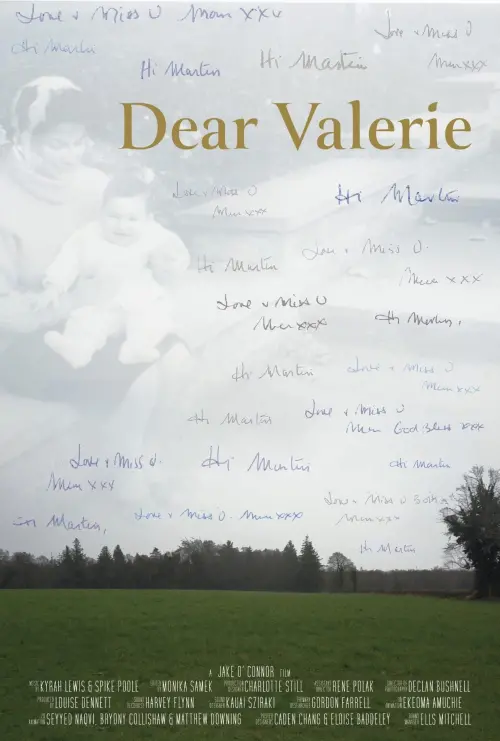 Love & Miss U Mam xxx
Love & Miss U
Mam xxx
Hi Martin
Hi Martin
Hi Martin
Dear Valerie
Love & Miss U
Mam xxx
Hi Martin
Love & Miss U.
Mam xxx
Hi Martin
Love & Miss U
Mam xxx
Hi Martin,
Hi Martin
Love & Miss U
Mam xxx
Hi Martin
Love & Miss U
Mam God bless xxx
Love & Miss U.
Mam xxx
Hi Martin
Hi Martin
Love & Miss U
Mam xxx
Hi Martin,
Love & Miss U. Mam xxx
Hi Martin
A JAKE O'CONNOR FILM
MUSIC BY KYRAH LEWIS & SPIKE POOLE EDITED BY MONIKA SAMEK PRODUCTION DESIGNER CHARLOTTE STILL ASSISTANT DIRECTOR RENE POLAK DIRECTOR OF PHOTOGRAPHY DECLAN BUSHNELL
PRODUCED BY LOUISE DENNETT SOUND RECORDIST HARVEY FLYNN SOUND DESIGNER KAUAI SZIRAKI GORDON FARRELL ANIMATION EKEOMA AMUCHIE
ANIMATION SEYYED NAQVI, BRYONY COLLISHAW & MATTHEW DOWNING CADEN CHANG & ELOISE BADDELEY ELLIS MITCHELL